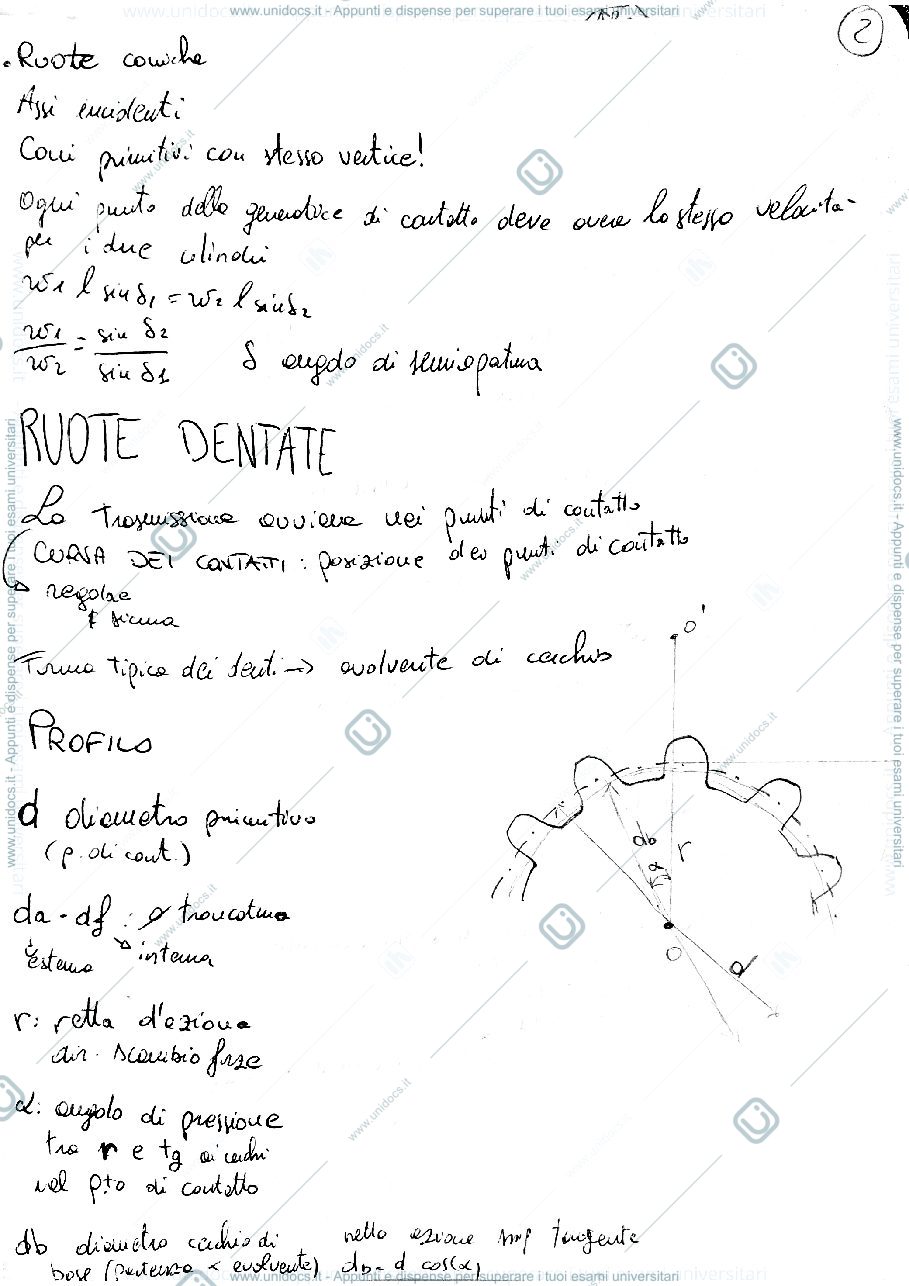 www.unidocs.it - Appunti e dispense per superare i tuoi esami universitari
2
. Ruote coniche
Assi incidenti
Coni primitivi con stesso vertice!
Ogni punto della generatrice di contatto deve avere la stessa velocità
per i due cilindri
w1 l sin δ1 = w2 l sin δ2
w1/w2 = sin δ2 / sin δ1    δ angolo di semiapertura
RUOTE DENTATE
La trasmissione avviene nei punti di contatto
CURVA DEI CONTATTI : posizione dei punti di contatto
→ regolare
sicura
Forma tipica dei denti → evolvente di cerchio
O'
PROFILO
d diametro primitivo
(p. di cont.)
db
r
α
O
d
da - df : ø troncatura
esterna
interna
r: retta d'azione
dir. scambio forze
α: angolo di pressione
tra r e tg ai cerchi
nel p.to di contatto
db diametro cerchio di
base (partenza evolvente)
retta azione tangente
db = d cos(α)
www.unidocs.it - Appunti e dispense per superare i tuoi esami universitari